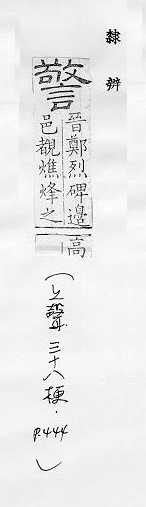 隸辨
警
晉鄭烈碑邊
邑覩燋烽之
高
(上聲三十八梗·P.444)